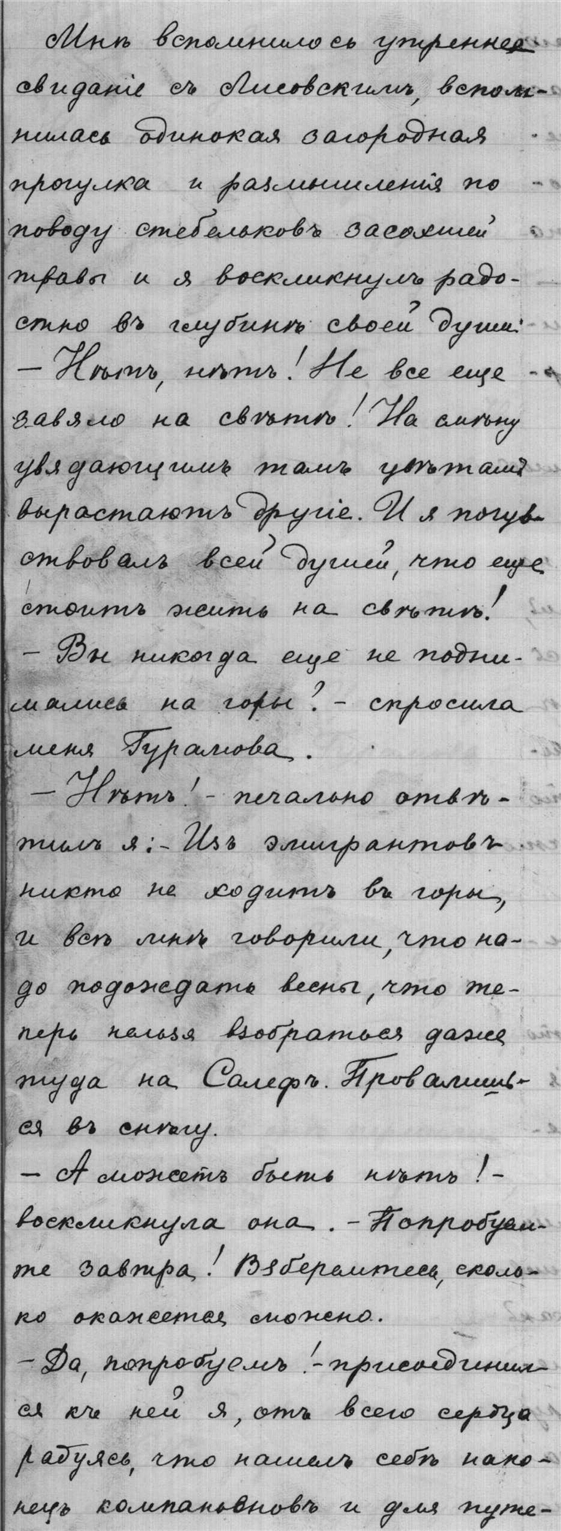 Мнѣ вспомнилось утреннее
свиданіе съ Лисовскимъ, вспом-
нилась одинокая загородная
прогулка и размышленія по
поводу стебельковъ засохшей
травы и я воскликнулъ радо-
стно въ глубинѣ своей души:
— Нѣтъ, нѣтъ! Не все еще
завяло на свѣтѣ! На смѣну
увядающимъ тамъ цвѣтамъ
вырастаютъ другіе. И я почув-
ствовалъ всей душей, что еще
стоитъ жить на свѣтѣ!
— Вы никогда еще не подни-
мались на горы? — спросила
меня Гурамова.
— Нѣтъ! — печально отвѣ-
тилъ я: — Изъ эмигрантовъ
никто не ходитъ въ горы,
и всѣ мнѣ говорили, что на-
до подождать весны, что те-
перь нельзя взобраться даже
туда на Салефъ. Провалишь-
ся въ снѣгу.
— А можетъ быть нѣтъ! —
воскликнула она. — Попробуем-
те завтра! Взберемтесь, сколь-
ко окажется можно.
— Да, попробуемъ! — присоединил-
ся къ ней я, отъ всего сердца
радуясь, что нашелъ себѣ нако-
нецъ компаньоновъ и для путе-